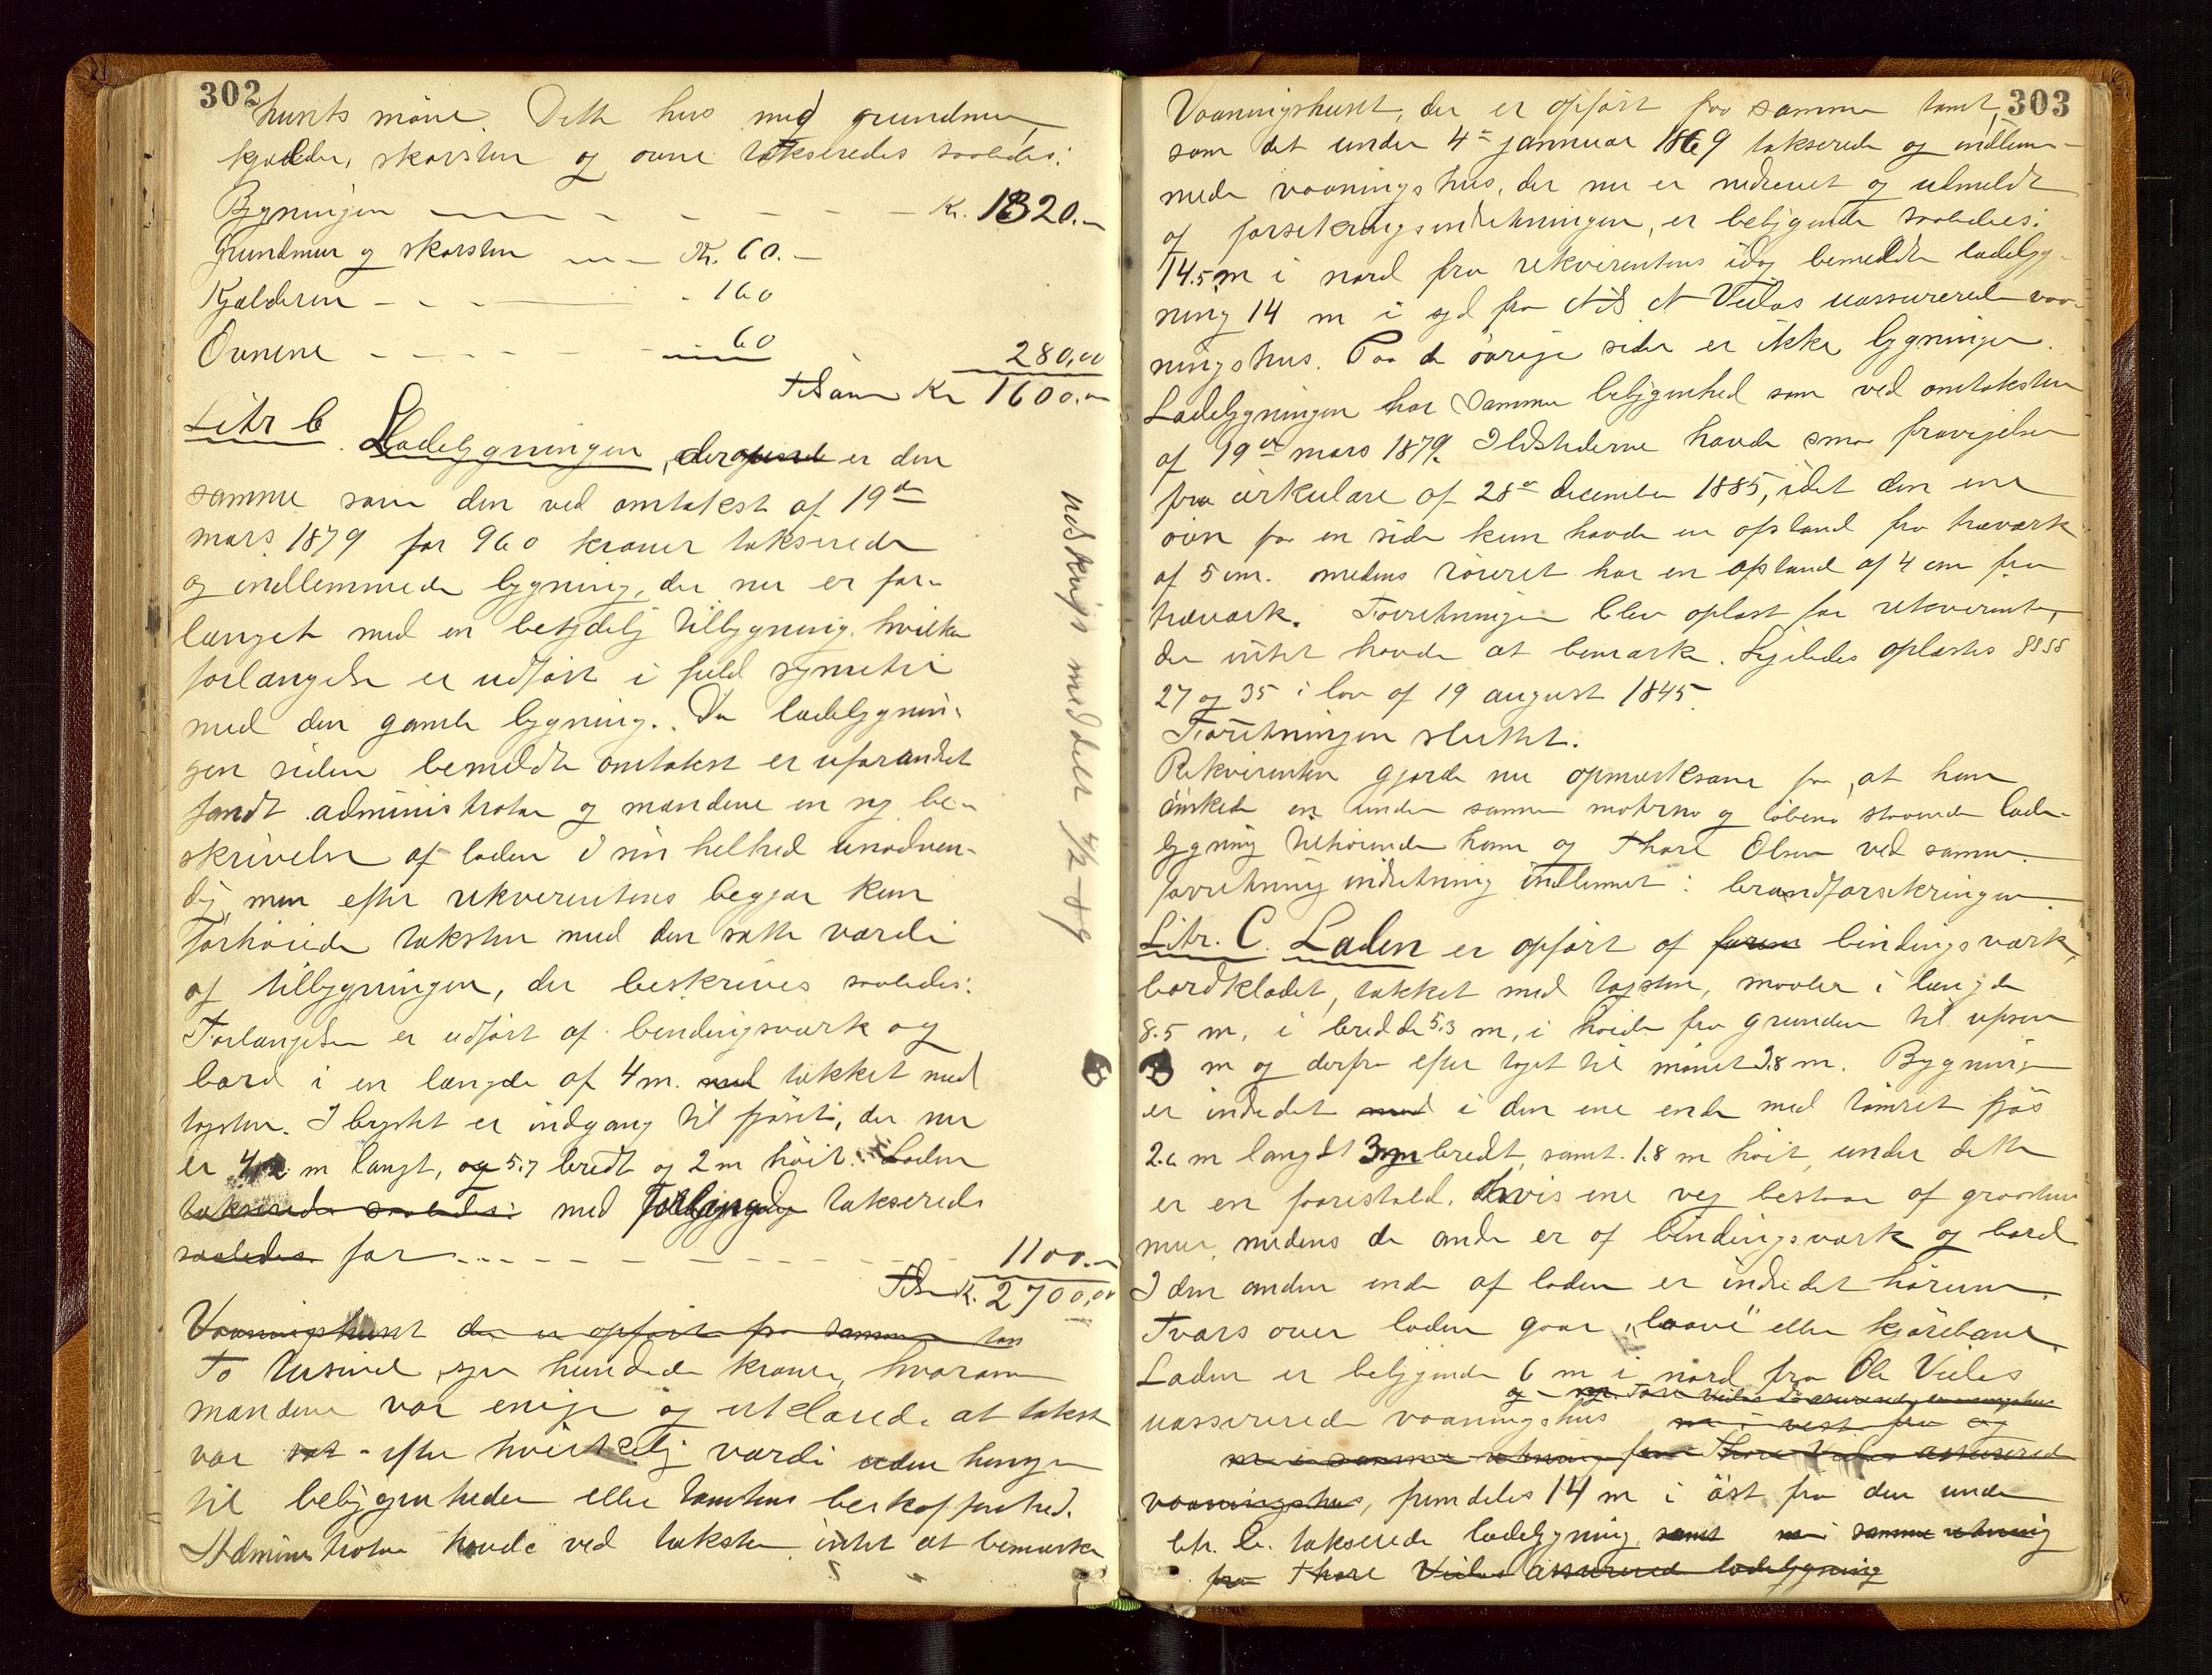 302
husets møne. Dette hus med grundmur,
kjælder, skorsten og ovne takseredes saaledes:
Bygningen — — — — Kr. 1320.—
Grundmur og skorsten — — Kr. 60.—
Kjælderen — — — 160
Ovnene — — — 60
280,00
Tilsam Kr 1600.—
Litr b. Ladebygningen, der er den
samme som den ved omtakst af 19de
mars 1879 for 960 kroner takserede
og indlemmede bygning, der nu er for-
længet med en betydelig tilbygning, hvilken
forlængelse er udført i fuld symetri
med den gamle bygning. Da ladebygnin-
gen siden bemeldte omtakst er uforandret
fandt administrator og mændene en ny be-
skrivelse af laden i sin helhed unødven-
dig, men efter rekvirentens begjær kun
forhøiede taksten med den satte værdi
af tilbygningen, der beskrives saaledes:
Forlængelsen er udført af bindingsværk og
bord i en længde af 4 m. med takket med
tagsten. I bygget er indgang til fjøset, der nu
er m langt, og 5.7 bredt og 2 m høit. Laden
takseredes saaledes: med takseredes
saaledes for — — — 1100.—
Tils. Kr. 2700,00
Vaaningshuset der er opført paa samme tomt
To tusind syv hundrede kroner, hvorom
mændene var enige og erklærede at takst
var sat efter hvirkelig værdi uden hensyn
til beliggenheden eller tomtens beskaffenhed.
Administrator havde ved taksten intet at bemærke
udskrift meddelt 4/2 - 89
303
Vaaningshuset, der er opført paa samme tomt,
som det under 4de januar 1869 takserede og indlem-
mede vaaningshus, der nu er nedrevet og udmeldt
af forsikringsindretningen, er beliggende saaledes:
14.5 m i nord fra rekvirentens idag bemeldte ladebyg-
ning 14 m i syd fra Nils N Veilas uassurerede vaa-
ningshus. Paa de øvrige sider er ikke bygninger.
Ladebygningen har samme beliggenhed som ved omtaksten
af 19de mars 1879. Ildstederne havde smaa fravigelser
fra cirkulære af 28de december 1885, idet den ene
ovn paa en side kun havde en afstand fra træværk
af 5 cm. medens røret har en afstand af 4 cm fra
træværk. Forretningen blev oplæst for rekvirenten,
der intet havde at bemærke. Ligeledes oplæstes §§
27 og 35 i lov af 19 august 1845.
Forretningen sluttet.
Rekvirenten gjorde nu opmærksom paa, at han
ønskede en under samme matrno og løbeno staaende lade-
bygning tilhørende ham og Thore Olsen ved samme
forretning indlemmet i brandforsikringen.
Litr. C. Laden er opført af bindingsværk,
bordklædet, takket med tagsten, maaler i længde
8.5 m, i bredde 5.3 m, i høide fra grunden til upsen
m og derfra efter taget til mønet 3.8 m. Bygningen
er indredet med i den ene ende med tømret fjøs
2.6 m langt 3 m bredt, samt 1.8 m høit, under dette
er en faarestald, hvis ene veg bestaar af graasten
mur, medens de andre er af bindingsværk og bord.
I den anden ende af laden er indredet hørum.
Tvars over laden gaar "laave" eller kjørebane.
Laden er beliggende 6 m i nord fra Ole Veilas
og - m Tore Veilas assurerede vaaningshus
uassurerede vaaningshus m i vest fra og
m i samme retning fra Thore Veilas assurerede
vaaningshus, fremdeles 14 m i øst fra den under
litr. b. takserede ladebygning, samt m i samme retning
fra Thore Veilas assurered ladebygning